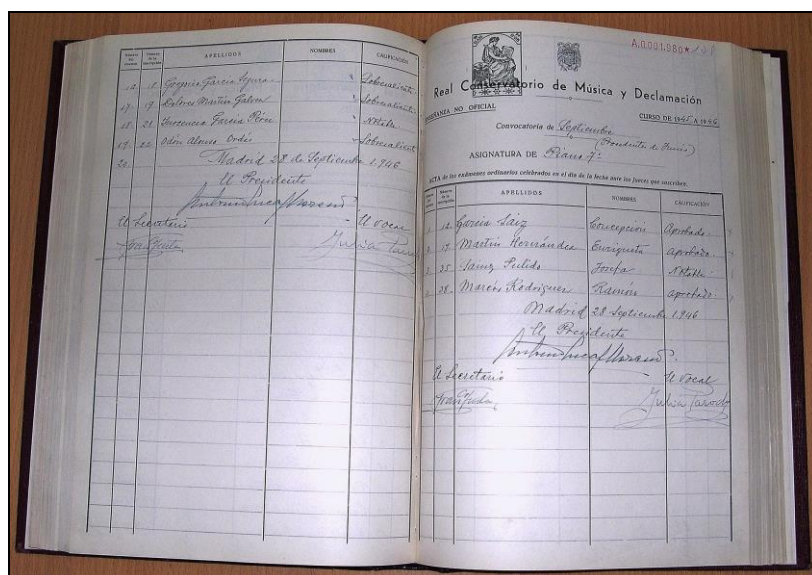 APELLIDOS NOMBRES CALIFICACIÓN
18 Gregorio García Segura Sobresaliente
17 19 Dolores Martín Sobresaliente
18 21 Inocencio García Pérez Notable
19 22 Odón Alonso Ordás Sobresaliente
20 Madrid 28 de Septiembre 1.946
El Presidente
El Secretario El Vocal
A.0.001.980
Real Conservatorio de Música y Declamación
ENSEÑANZA NO OFICIAL CURSO DE 1945 A 1946
Convocatoria de Septiembre
(Procedente de Junio)
ASIGNATURA DE Piano 7º
ACTA de los exámenes ordinarios celebrados en el día de la fecha ante los jueces que suscriben.
APELLIDOS NOMBRES CALIFICACIÓN
1 12 García Sáiz Concepción Aprobado
2 17 Martín Hernández Enriqueta aprobado
3 25 Sainz Pulido Josefa Notable
28 Marcos Rodríguez Ramón aprobado
Madrid 28 Septiembre 1.946
El Presidente
El Secretario El Vocal